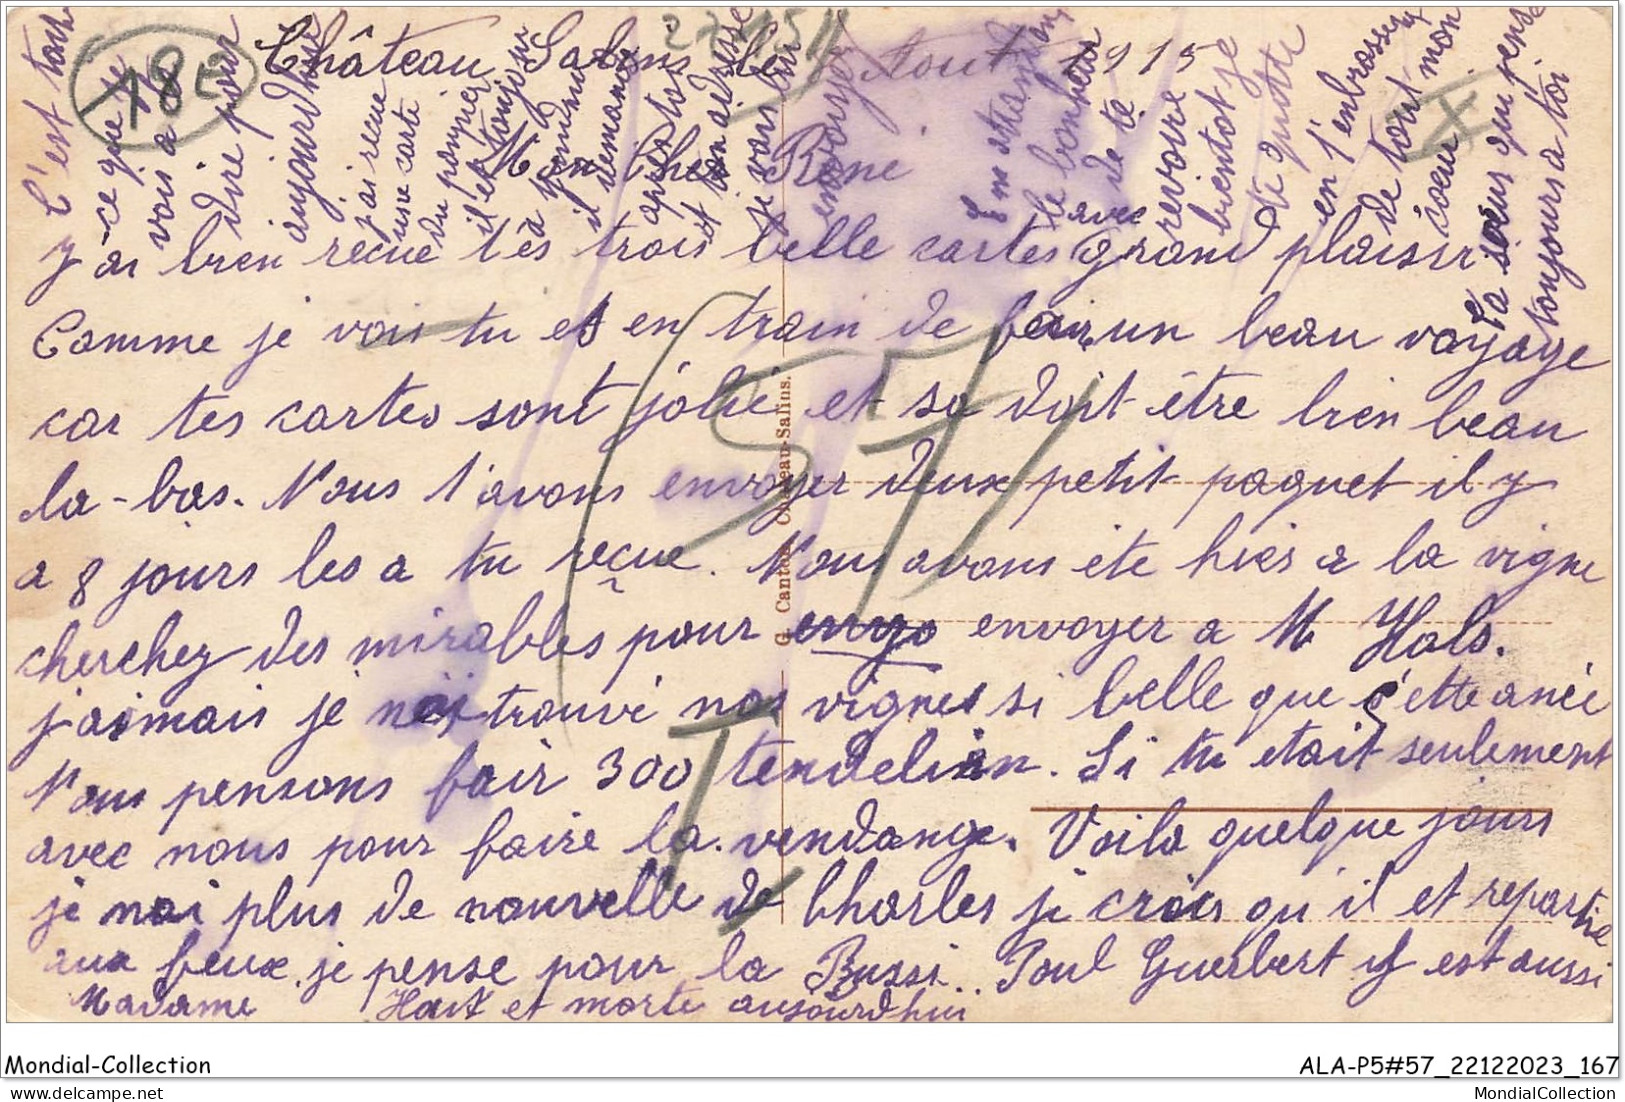 Château Salins le Aout 1915
Mon Cher René
j'ai bien recue tes trois belle cartes avec grand plaisir.
Comme je vois tu et en train de fair un beau voyage
car tes cartes sont jolie et sa doit être bien beau
la-bas. Nous t'avons envoyer deux petit paquet il y
a 8 jours les a tu reçue. Nous avons éte hier a la vigne
cherchez des mirables pour envyo envoyer a M Hals.
j'aimais je nai trouvé nos vignes si belle que c'ette anée
Nous pensons fair 300 tendelin. Si tu etait seulement
avec nous pour faire la vendange. Voila quelque jours
je nai plus de nouvelle de Charles je crois qu'il et repartie
aux feux. je pense pour la Russi. Poul Guerbert y est aussi
Madame Hait et morte aujourdhui
C'est tout
ce que je
vois a
dire pour
aujourdhui
j'ai recue
une carte
du pompier
il et toujour
a
il demande
apres ta
et ton adresse
je vais lui
envoyer
En attendent
le bonheur
de te
revoire
bientot je
te quitte
en t'enbrassen
de tout mon
coeur
Ta soeur qui pense
toujours a toi
18 L
57
T
X
G. Canton Château-Salins.
Mondial-Collection
ALA-P5#57_22122023_167
delcampe.net
MondialCollection